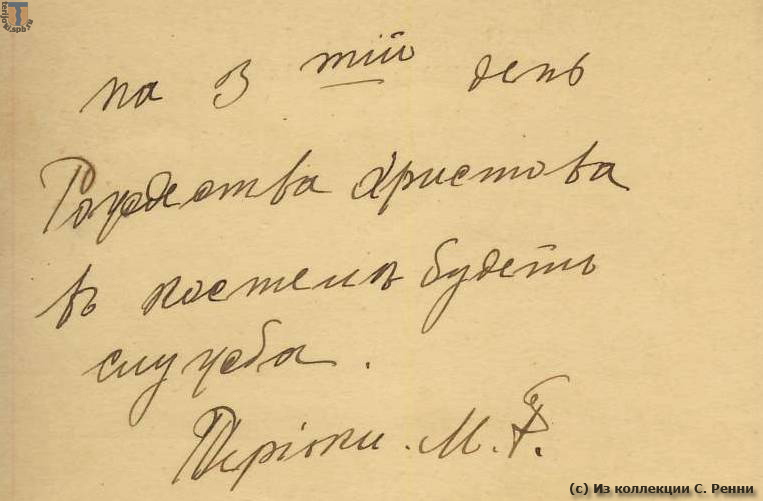 terijoki.spb.ru
на 3 тій день
Рождества Христова
въ костелѣ будетъ
служба.
Теріоки. М. Ф.
(c) Из коллекции С. Ренни